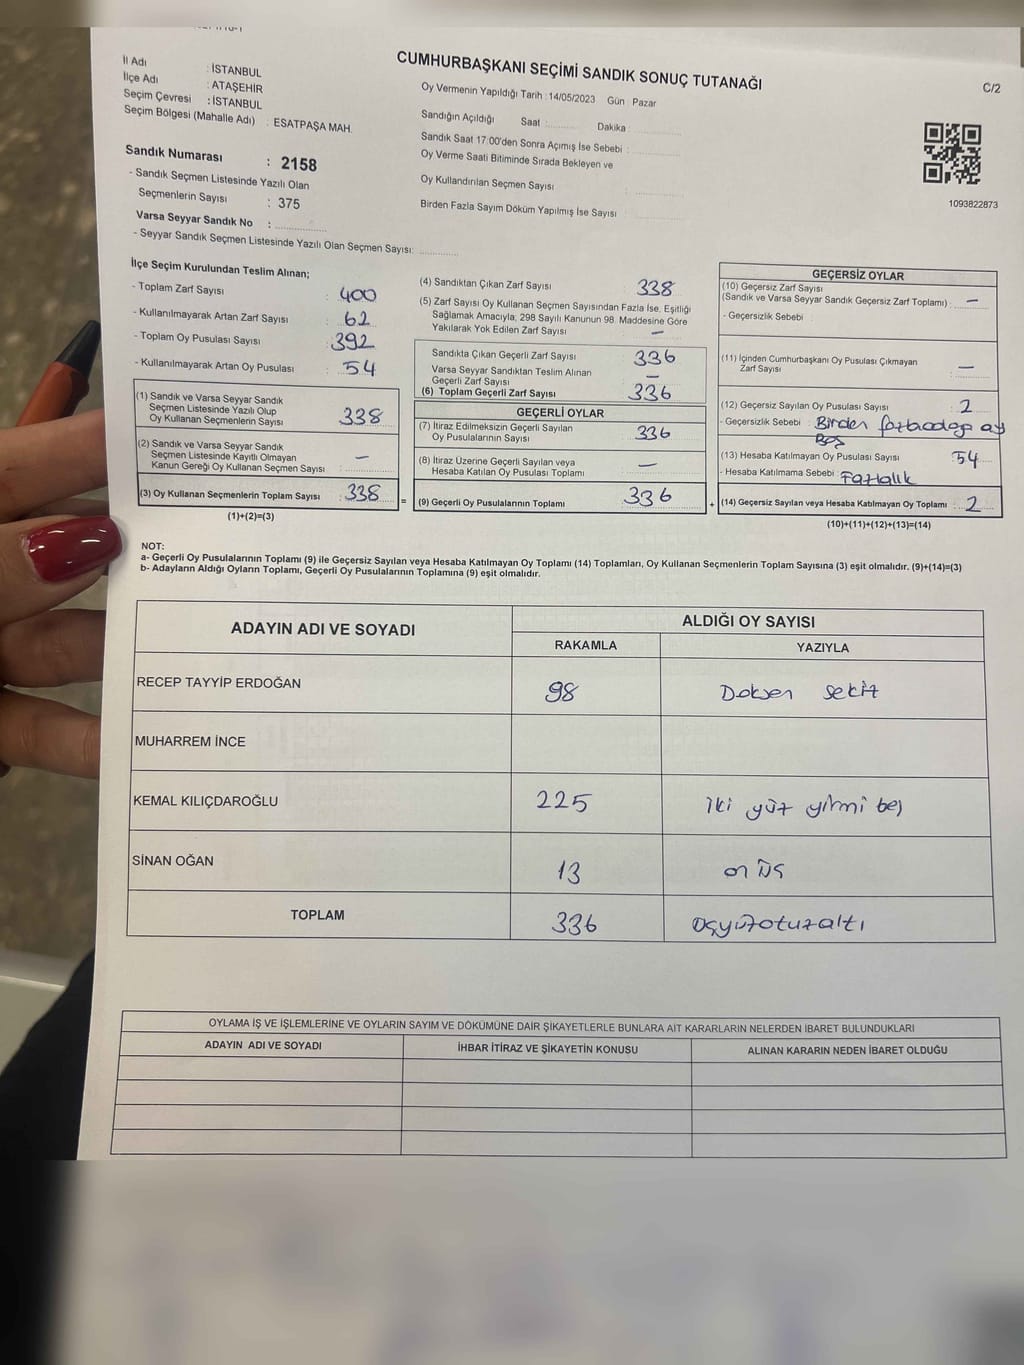 C/2
CUMHURBAŞKANI SEÇİMİ SANDIK SONUÇ TUTANAĞI
İl Adı : İSTANBUL
İlçe Adı : ATAŞEHİR
Seçim Çevresi : İSTANBUL
Seçim Bölgesi (Mahalle Adı) : ESATPAŞA MAH.
Sandık Numarası : 2158
- Sandık Seçmen Listesinde Yazılı Olan
Seçmenlerin Sayısı : 375
Varsa Seyyar Sandık No :
- Seyyar Sandık Seçmen Listesinde Yazılı Olan Seçmen Sayısı:
Oy Vermenin Yapıldığı Tarih : 14/05/2023 Gün : Pazar
Sandığın Açıldığı Saat : Dakika :
Sandık Saat 17:00'den Sonra Açımış İse Sebebi :
Oy Verme Saati Bitiminde Sırada Bekleyen ve
Oy Kullandırılan Seçmen Sayısı :
Birden Fazla Sayım Döküm Yapılmış İse Sayısı :
1093822873
İlçe Seçim Kurulundan Teslim Alınan;
- Toplam Zarf Sayısı : 400
- Kullanılmayarak Artan Zarf Sayısı : 62
- Toplam Oy Pusulası Sayısı : 392
- Kullanılmayarak Artan Oy Pusulası : 54
(1) Sandık ve Varsa Seyyar Sandık
Seçmen Listesinde Yazılı Olup
Oy Kullanan Seçmenlerin Sayısı : 338
(2) Sandık ve Varsa Seyyar Sandık
Seçmen Listesinde Kayıtlı Olmayan
Kanun Gereği Oy Kullanan Seçmen Sayısı : —
(3) Oy Kullanan Seçmenlerin Toplam Sayısı : 338 =
(1)+(2)=(3)
(4) Sandıktan Çıkan Zarf Sayısı 338
(5) Zarf Sayısı Oy Kullanan Seçmen Sayısından Fazla İse, Eşitliği
Sağlamak Amacıyla, 298 Sayılı Kanunun 98. Maddesine Göre
Yakılarak Yok Edilen Zarf Sayısı : —
Sandıkta Çıkan Geçerli Zarf Sayısı 336
Varsa Seyyar Sandıktan Teslim Alınan
Geçerli Zarf Sayısı —
(6) Toplam Geçerli Zarf Sayısı 336
GEÇERLİ OYLAR
(7) İtiraz Edilmeksizin Geçerli Sayılan
Oy Pusulalarının Sayısı 336
(8) İtiraz Üzerine Geçerli Sayılan veya
Hesaba Katılan Oy Pusulası Toplamı : —
(9) Geçerli Oy Pusulalarının Toplamı 336 +
GEÇERSİZ OYLAR
(10) Geçersiz Zarf Sayısı
(Sandık ve Varsa Seyyar Sandık Geçersiz Zarf Toplamı) : —
- Geçersizlik Sebebi :
(11) İçinden Cumhurbaşkanı Oy Pusulası Çıkmayan
Zarf Sayısı : —
(12) Geçersiz Sayılan Oy Pusulası Sayısı : 2
- Geçersizlik Sebebi : Birden
Boş
(13) Hesaba Katılmayan Oy Pusulası Sayısı : 54
- Hesaba Katılmama Sebebi : Fazlalık
(14) Geçersiz Sayılan veya Hesaba Katılmayan Oy Toplamı : 2
(10)+(11)+(12)+(13)=(14)
NOT:
a- Geçerli Oy Pusulalarının Toplamı (9) ile Geçersiz Sayılan veya Hesaba Katılmayan Oy Toplamı (14) Toplamları, Oy Kullanan Seçmenlerin Toplam Sayısına (3) eşit olmalıdır. (9)+(14)=(3)
b- Adayların Aldığı Oyların Toplamı, Geçerli Oy Pusulalarının Toplamına (9) eşit olmalıdır.
ADAYIN ADI VE SOYADI ALDIĞI OY SAYISI
RAKAMLA YAZIYLA
RECEP TAYYİP ERDOĞAN 98 Doksen sekiz
MUHARREM İNCE
KEMAL KILIÇDAROĞLU 225 iki yüz yirmi beş
SİNAN OĞAN 13 on üç
TOPLAM 336 üçyüzotuzaltı
OYLAMA İŞ VE İŞLEMLERİNE VE OYLARIN SAYIM VE DÖKÜMÜNE DAİR ŞİKAYETLERLE BUNLARA AİT KARARLARIN NELERDEN İBARET BULUNDUKLARI
ADAYIN ADI VE SOYADI İHBAR İTİRAZ VE ŞİKAYETİN KONUSU ALINAN KARARIN NEDEN İBARET OLDUĞU